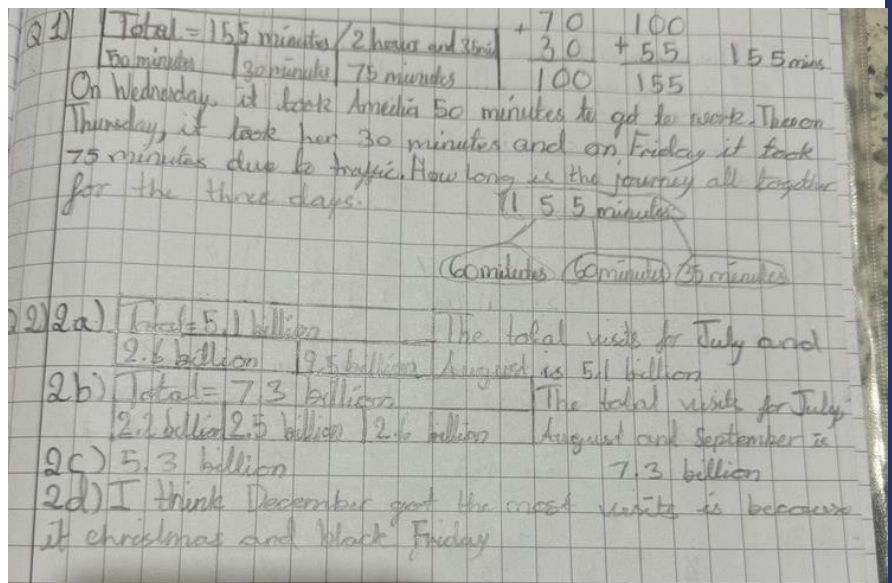 Q1) Total = 155 minutes / 2 hours and 35min + 70 100
50 minutes 30 minutes 75 minutes 30 + 55 155 mins
100 155
On Wednesday, it took Amelia 50 minutes to get to work. Then on
Thursday, it took her 30 minutes and on Friday it took
75 minutes due to traffic. How long is the journey all together
for the three days.
155 minutes
60 minutes 60 minutes 35 minutes
2) 2a) Total = 5.1 billion The total visits for July and
2.6 billion 2.5 billion August is 5.1 billion
2b) Total = 7.3 billion The total visits for July,
2.2 billion 2.5 billion 2.6 billion August and September is
2c) 5.3 billion 7.3 billion
2d) I think December got the most visits is because
it christmas and black Friday